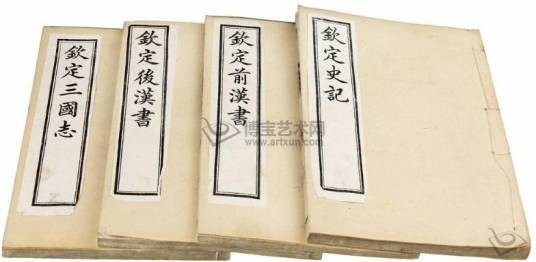 欽定史記
欽定前漢書
欽定後漢書
欽定三國志
博宝艺术网
www.artxun.com